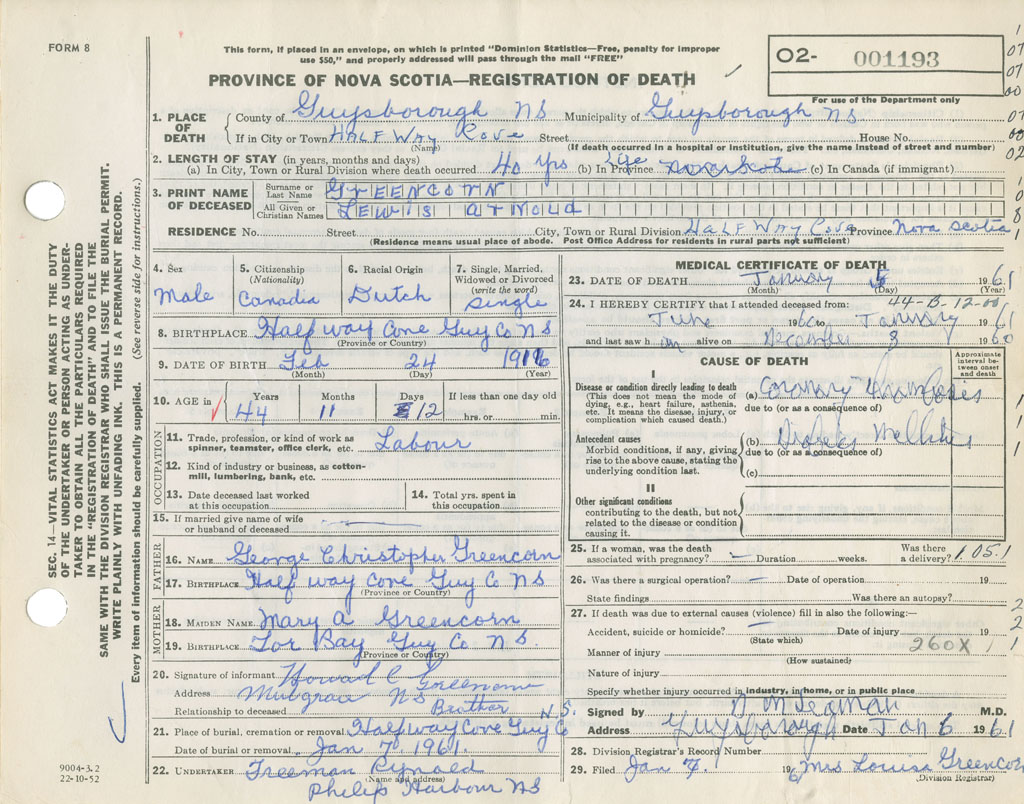 FORM 8
This form, if placed in an envelope, on which is printed "Dominion Statistics—Free, penalty for improper
use $50," and properly addressed will pass through the mail "FREE"
PROVINCE OF NOVA SCOTIA—REGISTRATION OF DEATH
O2- 001193
For use of the Department only
1. PLACE OF DEATH
County of Guysborough NS Municipality of Guysborough NS
If in City or Town Half Way Cove Street House No.
(Name) (If death occurred in a hospital or institution, give the name instead of street and number)
2. LENGTH OF STAY (in years, months and days)
(a) In City, Town or Rural Division where death occurred 40 yrs (b) In Province Life (c) In Canada (if immigrant)
3. PRINT NAME OF DECEASED
Surname or Last Name GREENCORN
All Given or Christian Names LEWIS ARNOLD
RESIDENCE No. Street City, Town or Rural Division Half Way Cove Province Nova Scotia
(Residence means usual place of abode. Post Office Address for residents in rural parts not sufficient)
4. Sex
Male
5. Citizenship (Nationality)
Canadia
6. Racial Origin
Dutch
7. Single, Married, Widowed or Divorced (write the word)
single
8. BIRTHPLACE Half way Cone Guy Co NS
(Province or Country)
9. DATE OF BIRTH Feb 24 1916
(Month) (Day) (Year)
10. AGE in Years Months Days If less than one day old
44 11 12 hrs. or min.
OCCUPATION
11. Trade, profession, or kind of work as spinner, teamster, office clerk, etc. Labour
12. Kind of industry or business, as cotton-mill, lumbering, bank, etc.
13. Date deceased last worked at this occupation
14. Total yrs. spent in this occupation
15. If married give name of wife or husband of deceased
FATHER
16. NAME George Christopher Greencorn
17. BIRTHPLACE Half way Cove Guy Co NS
(Province or Country)
MOTHER
18. MAIDEN NAME Mary A Greencorn
19. BIRTHPLACE Tor Bay Guy Co NS.
(Province or Country)
20. Signature of informant Howard C Greencorn
Address Mulgrave NS
Relationship to deceased Brother
21. Place of burial, cremation or removal Halfway Cove Guy Co N.S.
Date of burial or removal Jan 7 1961.
22. UNDERTAKER Freeman Rynold
(Name and address)
Philip Harbour NS
MEDICAL CERTIFICATE OF DEATH
23. DATE OF DEATH January 5 1961
(Month) (Day) (Year)
44-B-12-00
24. I HEREBY CERTIFY that I attended deceased from:
June 1960 to January 1961
and last saw him alive on December 3 1960
CAUSE OF DEATH
Approximate interval between onset and death
I
Disease or condition directly leading to death
(This does not mean the mode of dying, e.g., heart failure, asthenia, etc. It means the disease, injury, or complication which caused death.)
(a) Coronary Thrombosis
due to (or as a consequence of)
Antecedent causes
Morbid conditions, if any, giving rise to the above cause, stating the underlying condition last.
(b) Diabetes Mellitus
due to (or as a consequence of)
(c)
II
Other significant conditions
contributing to the death, but not related to the disease or condition causing it.
25. If a woman, was the death associated with pregnancy? Duration weeks. Was there a delivery? 1.05.1
26. Was there a surgical operation? Date of operation 19
State findings Was there an autopsy?
27. If death was due to external causes (violence) fill in also the following:—
Accident, suicide or homicide? Date of injury 19
(State which)
Manner of injury 260X
(How sustained)
Nature of injury
Specify whether injury occurred in industry, in home, or in public place
Signed by M.D.
Address Guysborough Date Jan 6 1961
28. Division Registrar's Record Number
29. Filed Jan 7. 196 Mrs Louisa Greencorn
(Division Registrar)
SEC. 14—VITAL STATISTICS ACT MAKES IT THE DUTY
OF THE UNDERTAKER OR PERSON ACTING AS UNDER-
TAKER TO OBTAIN ALL THE PARTICULARS REQUIRED
IN THE "REGISTRATION OF DEATH" AND TO FILE THE
SAME WITH THE DIVISION REGISTRAR WHO SHALL ISSUE THE BURIAL PERMIT.
WRITE PLAINLY WITH UNFADING INK. THIS IS A PERMANENT RECORD.
Every item of information should be carefully supplied. (See reverse side for instructions.)
9004-3.2
22-10-52